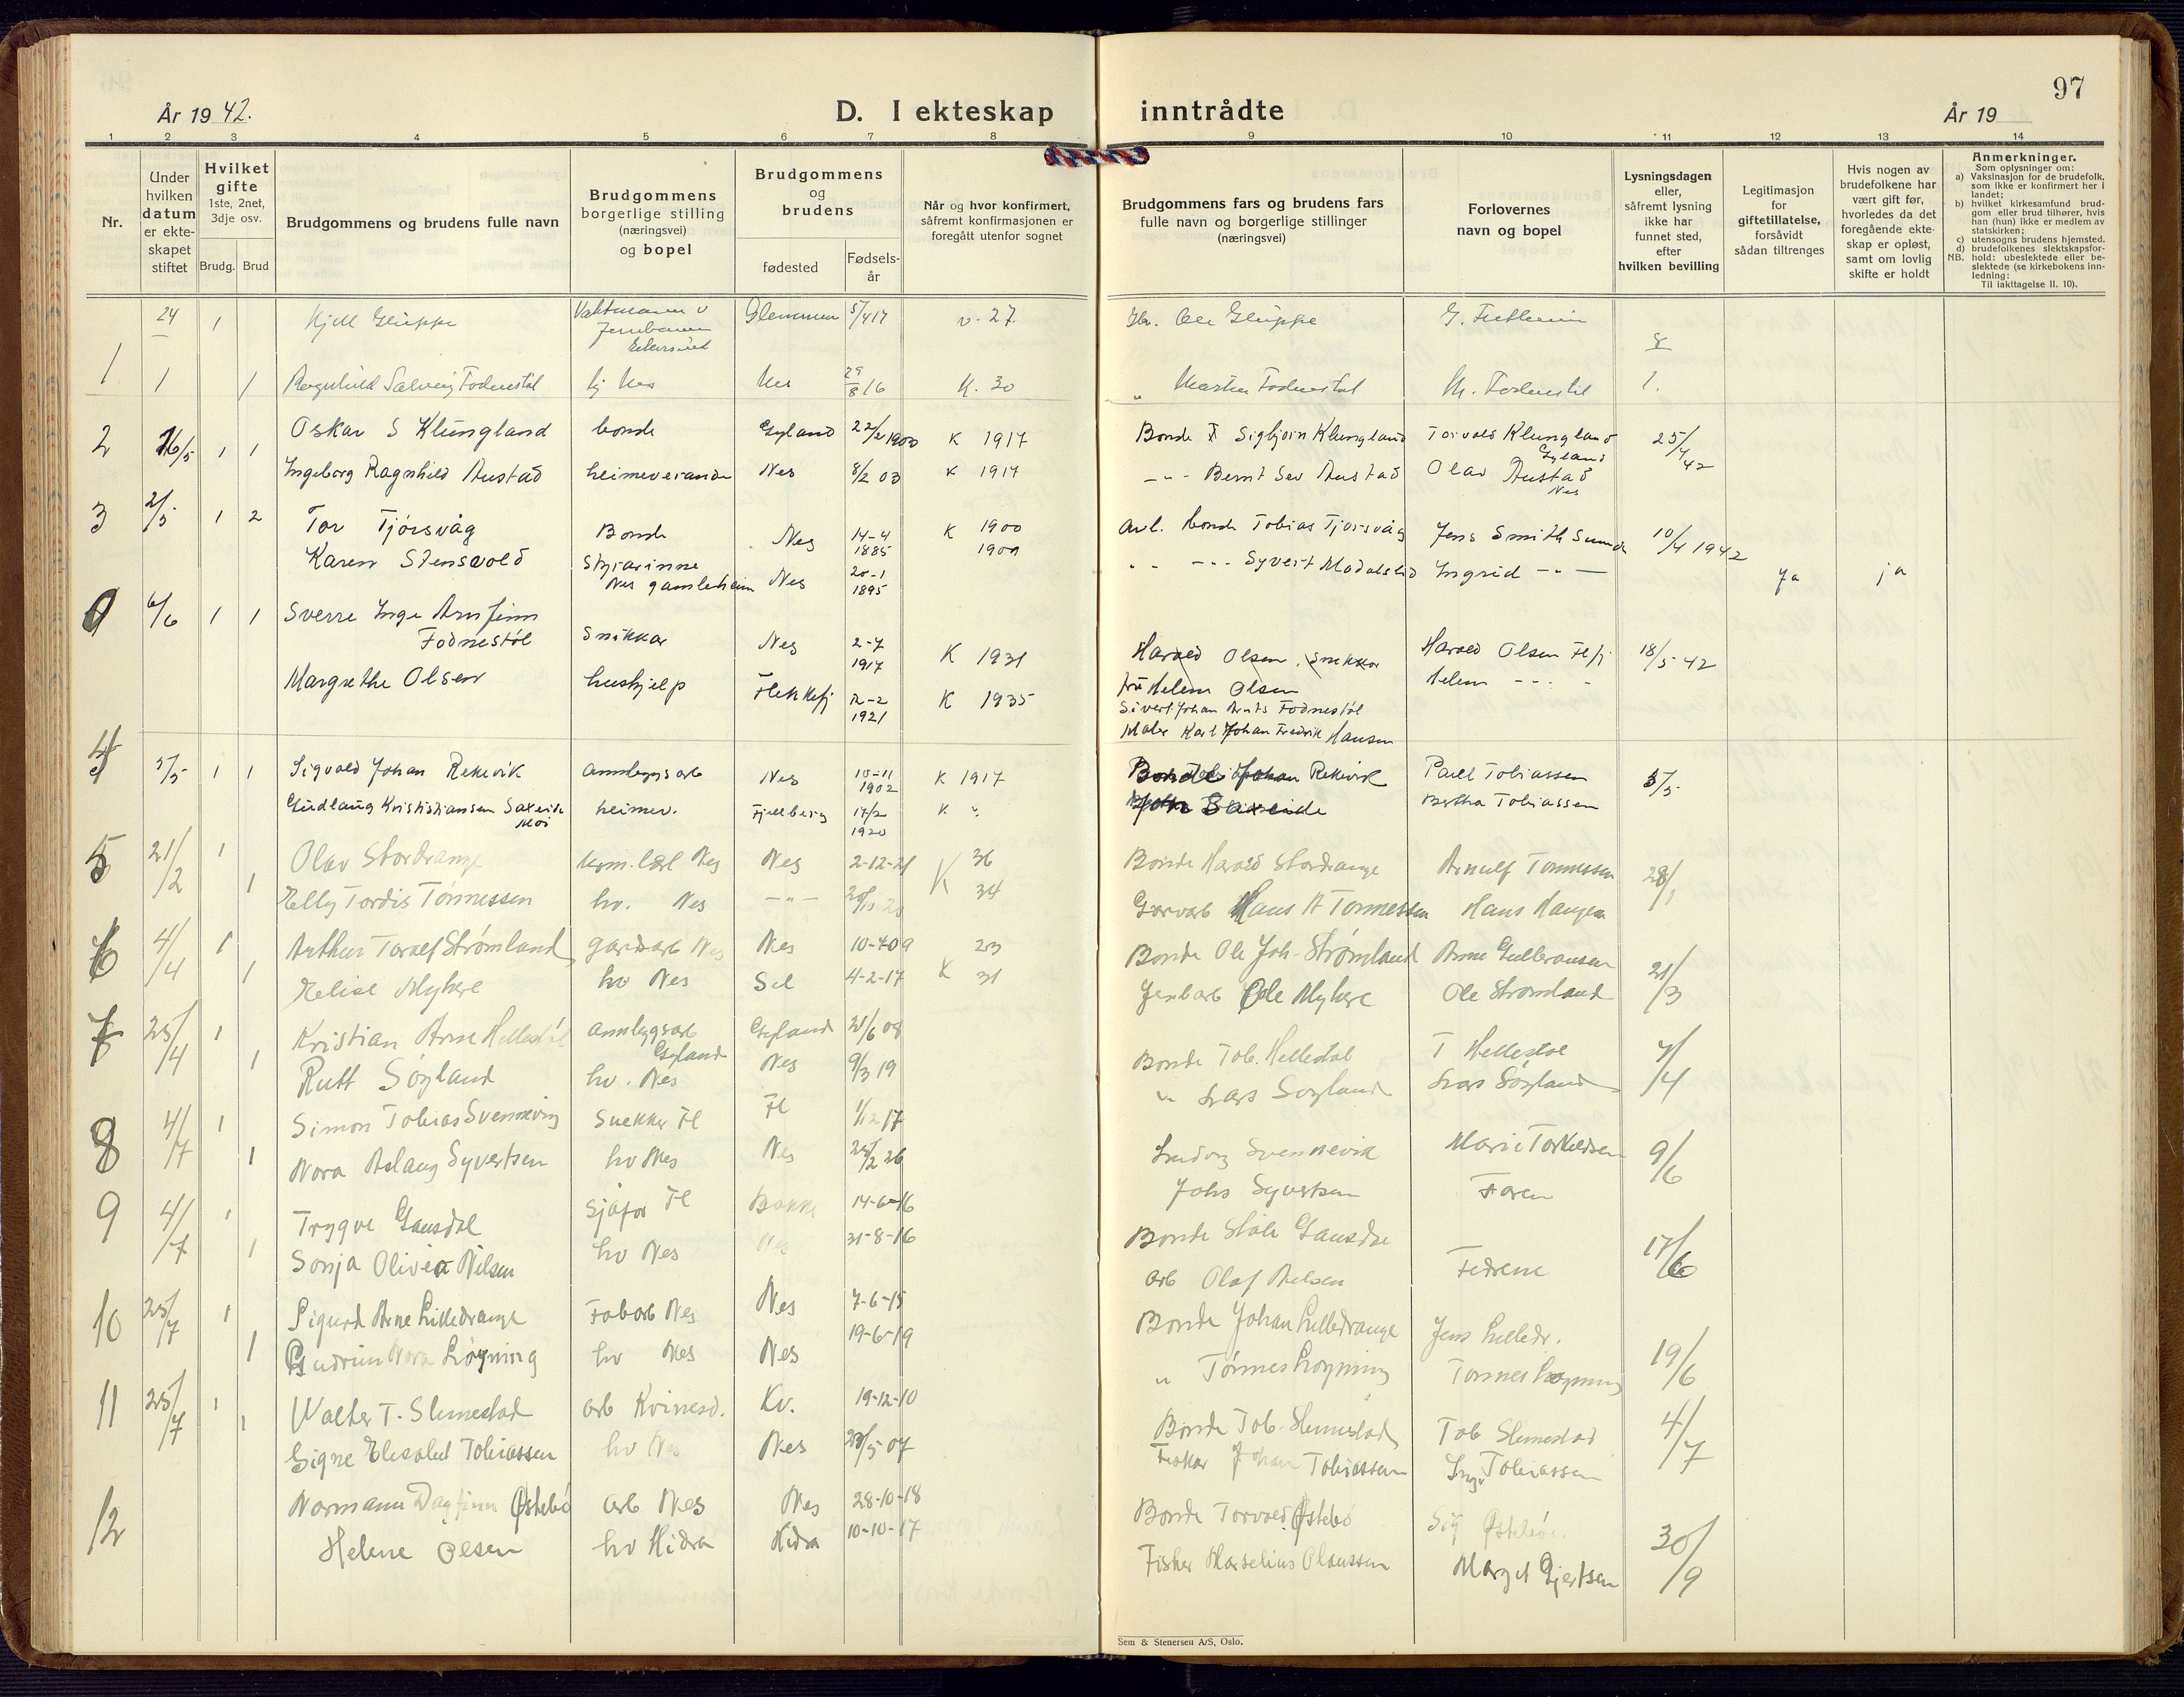 97
År 19 42.
D. I ekteskap inntrådte
År 19
1 2 3 4 5 6 7 8 9 10 11 12 13 14
Nr.
Under
hvilken
datum
er ekte-
skapet
stiftet
Hvilket
gifte
1ste, 2net,
3dje osv.
Brudg. Brud
Brudgommens og brudens fulle navn
Brudgommens
borgerlige stilling
(næringsvei)
og bopel
Brudgommens
og
brudens
fødested
Fødsels-
år
Når og hvor konfirmert,
såfremt konfirmasjonen er
foregått utenfor sognet
Brudgommens fars og brudens fars
fulle navn og borgerlige stillinger
(næringsvei)
Forlovernes
navn og bopel
Lysningsdagen
eller,
såfremt lysning
ikke har
funnet sted,
efter
hvilken bevilling
Legitimasjon
for
giftetillatelse,
forsåvidt
sådan tiltrenges
Hvis nogen av
brudefolkene har
vært gift før,
hvorledes da det
foregående ekte-
skap er opløst,
samt om lovlig
skifte er holdt
Anmerkninger.
Som oplysninger om:
a) Vaksinasjon for de brudefolk,
som ikke er konfirmert her i
landet;
b) hvilket kirkesamfund brud-
gom eller brud tilhører, hvis
han (hun) ikke er medlem av
statskirken;
c) utensogns brudens hjemsted.
d) brudefolkenes slektskapsfor-
NB. hold: ubeslektede eller be-
slektede (se kirkebokens inn-
ledning:
Til iakttagelse II. 10).
24 1 Kjell Gluppe Glemmen 5/4 17 v. 27. Ole Gluppe
Jernbanen
8
1 1 1 Ragnhild Salveig Fodnestøl hj Nes Nes 29/8 16 K. 30 " Martin Fodnestøl M. Fodnestøl 1.
2 16/5 1 1 Oskar S Klungland bonde Gyland 22/2 1900 K 1917 Bonde Sigbjørn Klungland Torvald Klungland Gyland 25/4 42
Ingeborg Ragnhild Austad heimeverande Nes 8/2 03 K 1917 -"- Bernt Sev Austad Olav Austad Nes
3 2/5 1 2 Tor Tjørsvåg Bonde Nes 14-4 1885 K 1900 Bonde Tobias Tjørsvåg Jens Smith Sunde 10/4 1942
Karen Stensvold Styrarinne Nes gamleheim Nes 20-1 1895 1909 " " -"- Syvert Modalsli Ingrid -"- ja ja
6/6 1 1 Sverre Inge Arnfinn
Fodnestøl Snikkar Nes 2-7 1917 K 1931 Harald Olsen, Snekker Harald Olsen Flfj 18/5-42
Margrethe Olsen hushjelp Flekkefj 12-2 1921 K 1935 fru Helene Olsen Helene -"-
Sivert Johan Arnts Fodnestøl
Maler Karl Johan Fredrik Hansen
4 3/5 1 1 Sigvald Johan Rekevik annleggsarb Nes 10-11 1902 K 1917 Bonde Johan Rekevik Paul Tobiassen 3/5
Gudlaug Kristiansen Saxeide heimev. Fjellberg 17/2 1920 K " Saxeide Bertha Tobiassen
5 21/2 1 Olav Stordrange Kom. lærl Nes Nes 2-12-21 K 36 Bonde Harald Stordrange Arnulf Tønnessen 28/1
1 Elly Tordis Tønnessen hv. Nes -"- 34 Garvarb Hans A Tønnessen Hans Haugen
6 4/4 1 Arthur Toralf Strømland gardsarb Nes Nes 10-4 09 23 Bonde Ole Joh. Strømland Arne Gulbransen 21/3
1 Elise Myhre hv Nes Sel 4-2-17 K 31 Jernbarb Ole Myhre Ole Strømland
7 25/4 1 Kristian Arne Hellestøl annleggsarb Gyland Gyland 21/6 08 Bonde Tob. Hellestøl T Hellestøl 7/4
1 Rutt Søyland hv. Nes Nes 9/3 19 " Lars Søyland Lars Søyland
8 4/7 1 Simon Tobias Svennevig Snekker Fl Fl 1/12 17 Ludvig Svennevik Marie Torkelsen 9/6
1 Nora Aslaug Syvertsen hv Nes Nes 25/2 26 Johs Syvertsen Faren
9 4/7 1 Trygve Gausdal Sjåfør Fl Bakke 14-6-16 Bonde Ståle Gausdal 17/6
1 Sonja Olivia Nilsen hv Nes Nes 31-8-16 Arb Olaf Nelsen Fedrene
10 25/7 1 Sigurd Arne Lilledrange Fabarb Nes Nes 7-6-15 Bonde Johan Lilledrange Jens Lilledr. 19/6
1 Gudrun Nora Løyning hv Nes Nes 19-6-19 " Tønnes Løyning Tønnes Løyning
11 25/7 1 Walter T. Slimestad arb Kvinesd. Kv. 19-12-10 Bonde Tob. Slimestad Tob Slimestad 4/7
1 Signe Elisabet Tobiassen hv Nes Nes 23/5 07 Fisker Johan Tobiassen Inga Tobiassen
12 Normann Dagfinn Østebø arb Nes Nes 28-10-18 Bonde Torvald Østebø Sig Østebø 30/9
Helene Olsen hv Hidra Hidra 10-10-17 Fisker Marselius Olaussen Margit Gjertsen
Sem & Stenersen A/S, Oslo.